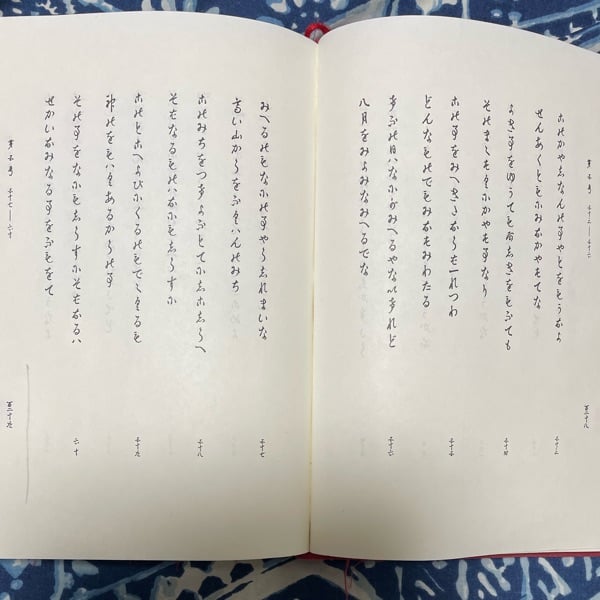 このかやしなんの事やとをもうかな
せんあくともにみなかやすてな
五十三
よき事をゆうてもあしきをもふても
そのまゝすくにかやす事なり
五十四
この事をみへきたならば一れつわ
どんなものでもみなすみわたる
五十五
けふの日ハなにがみへるやないけれど
八月をみよみなみへるでな
五十六
第五号 五十三――五十六
百二十八
みへるのもなにの事やらしれまいな
高い山からをふくハんのみち
五十七
このみちをつけよふとてにしこしらへ
そばなるものハなにもしらすに
五十八
このとこへよびにくるのもでゝくるも
神のをもハくあるからの事
五十九
その事をなにもしらすにそばなるハ
せかいなみなる事をふもをて
六十
第五号 五十七――六十
百二十九